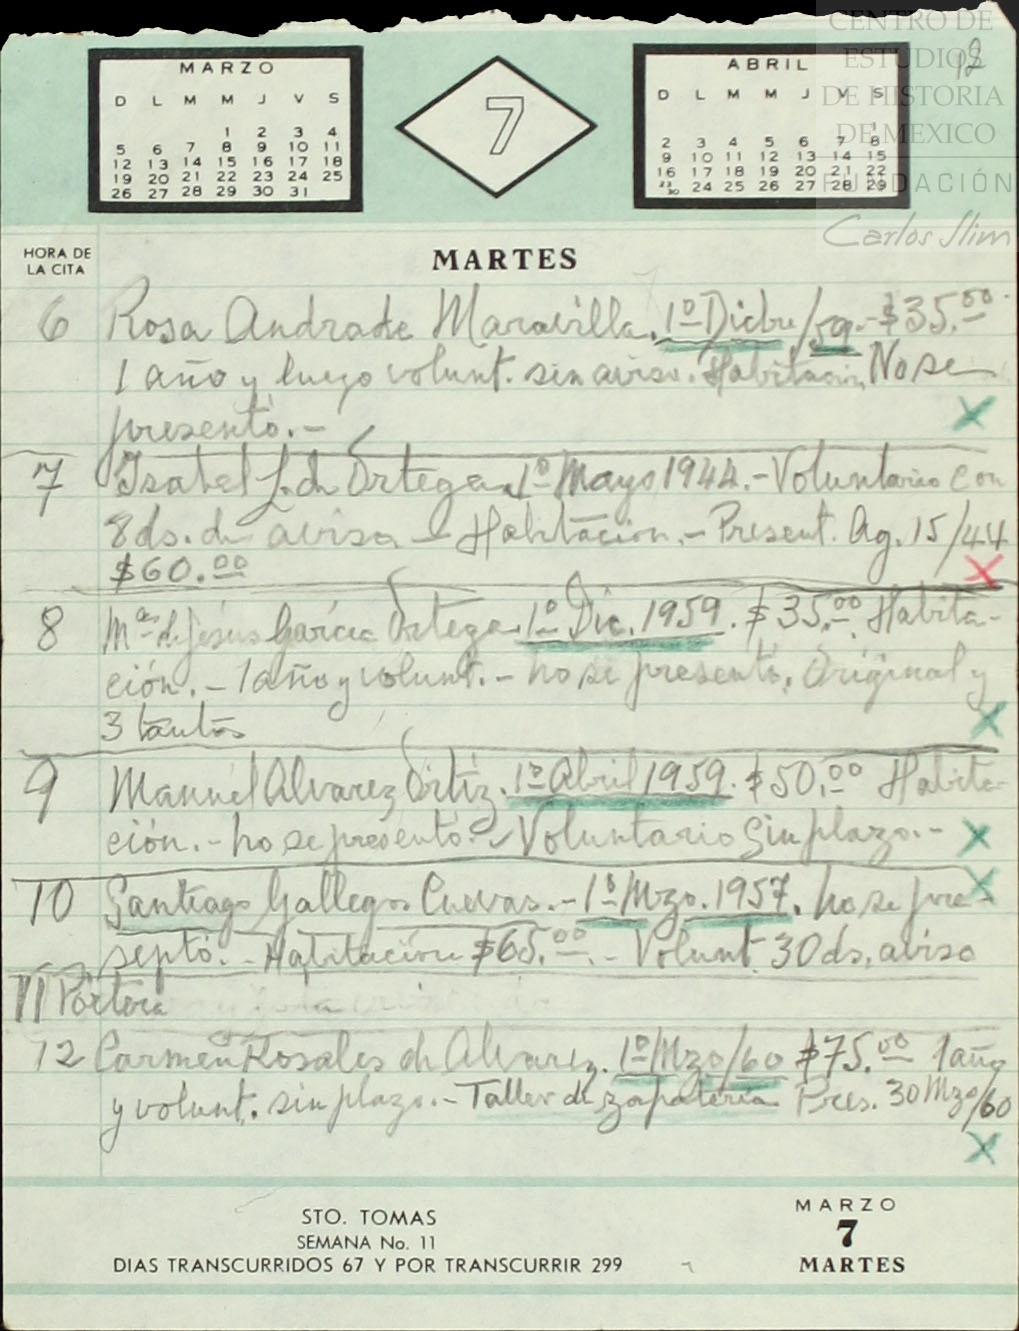 CENTRO DE
ESTUDIOS
DE HISTORIA
DE MEXICO
FUNDACIÓN
Carlos Slim
12
MARZO
D L M M J V S
1 2 3 4
5 6 7 8 9 10 11
12 13 14 15 16 17 18
19 20 21 22 23 24 25
26 27 28 29 30 31
7
ABRIL
D L M M J V S
1
2 3 4 5 6 7 8
9 10 11 12 13 14 15
16 17 18 19 20 21 22
23 30 24 25 26 27 28 29
HORA DE
LA CITA
MARTES
6 Rosa Andrade Maravilla. 1º Dicbre/59.- $35.00.
1 año y luego volunt. sin aviso. Habitación. No se
presentó.-
7 Isabel L. de Ortega. 1º Mayo 1944.- Voluntario con
8 ds. de aviso - Habitación.- Present. Ag. 15/44
$60.00
8 Ma. de Jesús García Ortega. 1º Dic. 1959. $35.00. Habita-
ción.- 1 año y volunt.- no se presentó. Original y
3 tantos
9 Manuel Alvarez Ortiz. 1º Abril 1959. $50.00 Habita-
ción.- no se presentó.- Voluntario sin plazo.-
10 Santiago Gallegos Cuevas.- 1º Mzo. 1957. no se pre-
sentó.- Habitación $65.00.- Volunt. 30 ds. aviso
11 Portera
12 Carmen Rosales de Alvarez. 1º Mzo/60 $75.00 1 año
y volunt. sin plazo.- Taller de zapatería Pres. 30 Mzo/60
STO. TOMAS
SEMANA No. 11
DIAS TRANSCURRIDOS 67 Y POR TRANSCURRIR 299
MARZO
7
MARTES